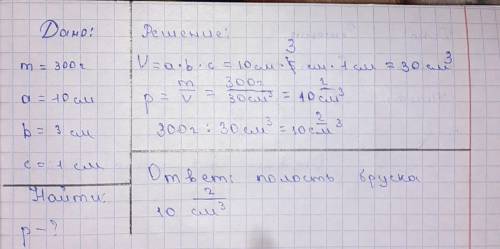 Дано:
m = 300г
a = 10 см
b = 3 см
c = 1 см
Найти:
p - ?
Решение:
V = a · b · c = 10 см · 3 см · 1 см = 30 см³
p = m/V = 300г/30см³ = 10 г/см³
300г : 30 см³ = 10 г/см³
Ответ: полость бруска
10 г/см³